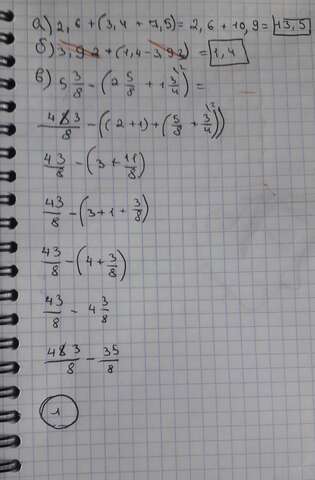 а) 2,6 + (3,4 + 7,5) = 2,6 + 10,9 = 13,5
б) 3,92 + (1,4 - 3,92) = 1,4
в) 5 3/8 - (2 5/8 + 1 3/4) =
43/8 - ((2+1) + (5/8 + 3/4))
43/8 - (3 + 11/8)
43/8 - (3 + 1 + 3/8)
43/8 - (4 + 3/8)
43/8 - 4 3/8
43/8 - 35/8
1